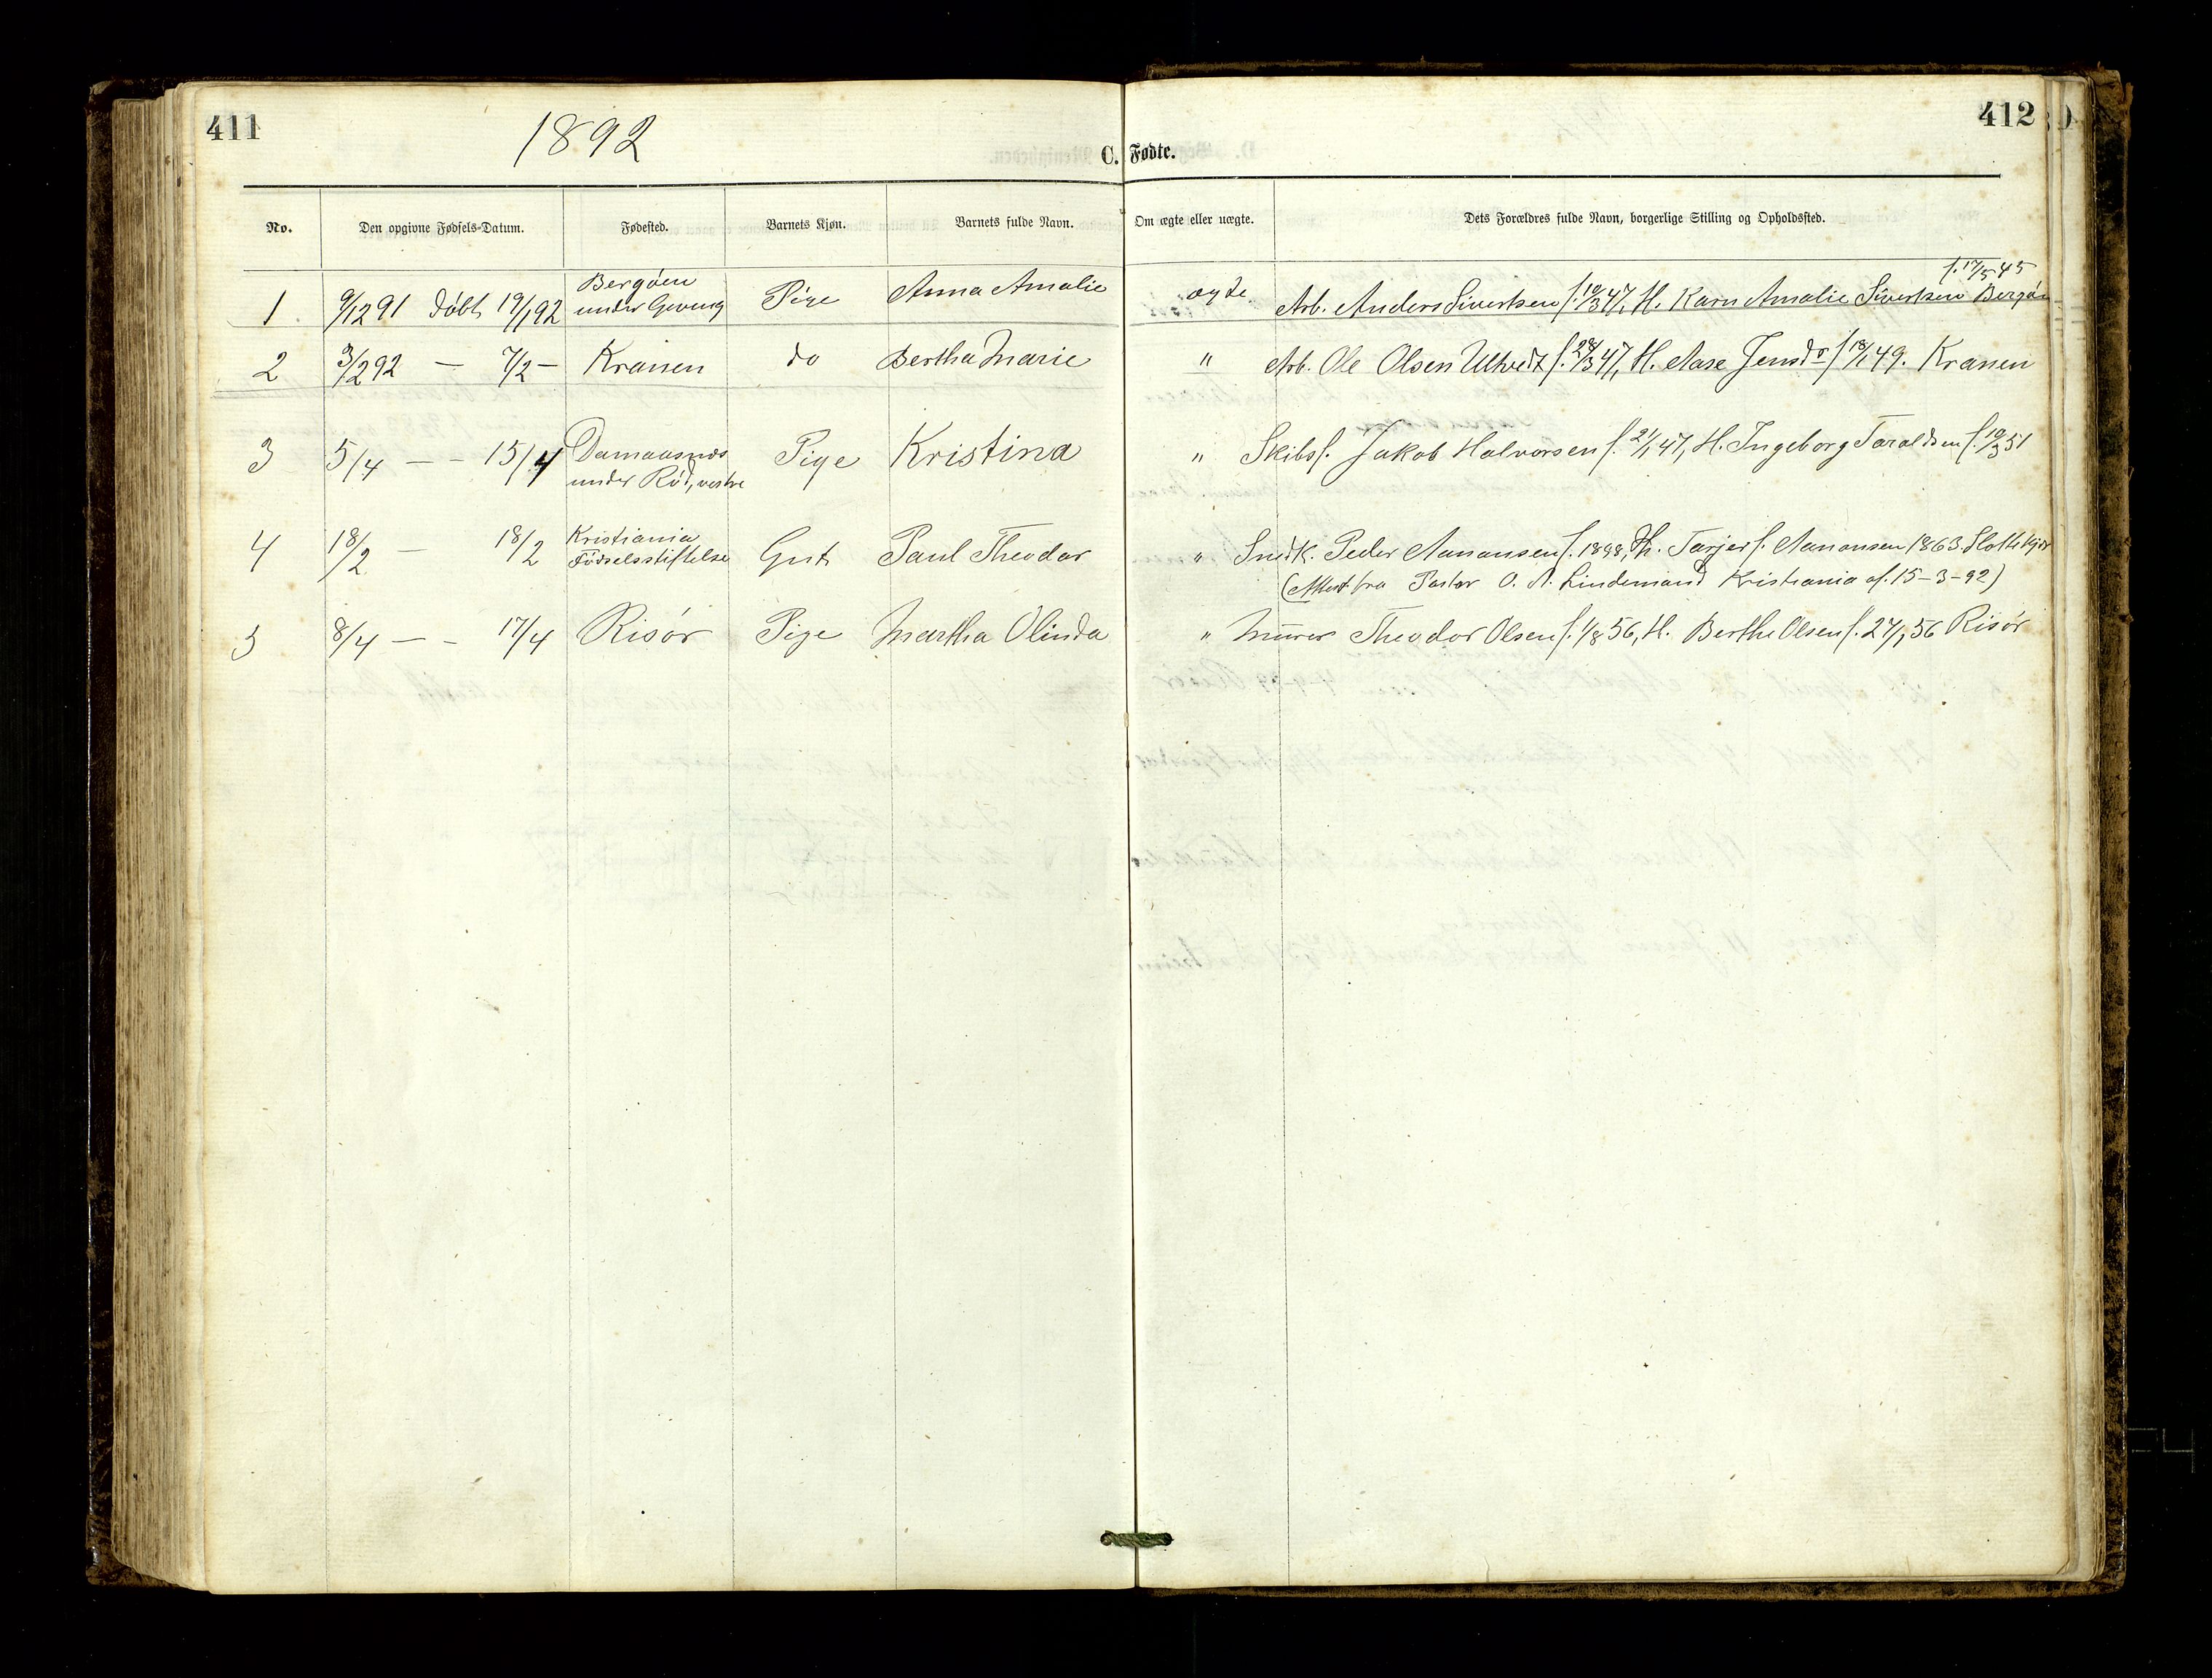 411
1892
412
C. Fødte.
No. Den opgivne Fødsels-Datum. Fødested. Barnets Kjøn. Barnets fulde Navn. Om ægte eller uægte. Dets Forældres fulde Navn, borgerlige Stilling og Opholdssted.
Bergöen f. 17/5 45
1 9/12 91 döbt 19/1 92 under Gjeving Pige Anna Amalie ægte Arb. Anders Sivertsen f. 10/3 47, H. Karn Amalie Sivertsen Bergöen
2 3/2 92 — 7/2 — Kranen do Bertha Marie " Arb. Ole Olsen Ultvedt f. 28/3 47, H. Aase Jensdr f 18/1 49. Kranen
3 5/4 — - 15/4 Damaasnæs Pige Kristina " Skibsf. Jakob Halvorsen f. 21/1 47, H. Ingeborg Taraldsen f. 10/3 51
under Röd, vestre
4 18/2 — 18/2 Kristiania Gut Paul Theodor " Snedk. Peder Aanonsen f. H. Tarjer f. Aanonsen 1863.
Födselsstiftelse (Attest fra Pastor O. A. Lindemand Kristiania af. 15-3-92)
5 8/4 — - 17/4 Risör Pige Martha Olinda " Murer Theodor Olsen f. 1/8 56, H. Berthe Olsen f. 27/1 56 Risör